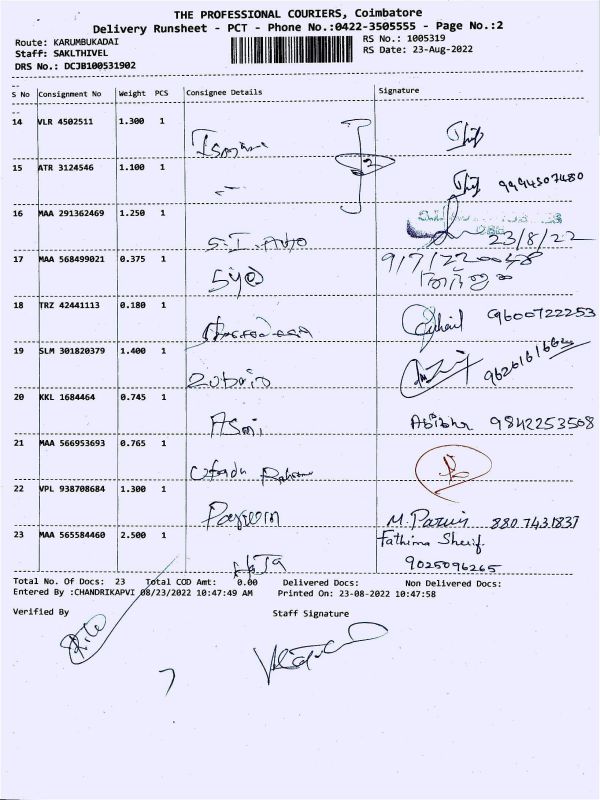 THE PROFESSIONAL COURIERS, Coimbatore
Delivery Runsheet - PCT - Phone No.:0422-3505555 - Page No.:2
Route: KARUMBUKADAI
RS No.: 1005319
Staff: SAKLTHIVEL
RS Date: 23-Aug-2022
DRS No.: DCJB100531902
S No Consignment No Weight PCS Consignee Details Signature
14 VLR 4502511 1.300 1
15 ATR 3124546 1.100 1
2
9994507480
16 MAA 291362469 1.250 1
S.I. Auto
23/8/22
17 MAA 568499021 0.375 1
Syed
18 TRZ 42441113 0.180 1
Suhail 9600722253
19 SLM 301820379 1.400 1
Zubair
9626161662
20 KKL 1684464 0.745 1
Asmi
Abibha 9842253508
21 MAA 566953693 0.765 1
22 VPL 938708684 1.300 1
M. Parvin 880 7431837
23 MAA 565584460 2.500 1
Fathima Sherif
9025096265
Total No. Of Docs: 23 Total COD Amt: 0.00 Delivered Docs: Non Delivered Docs:
Entered By :CHANDRIKAPVI 08/23/2022 10:47:49 AM Printed On: 23-08-2022 10:47:58
Verified By Staff Signature